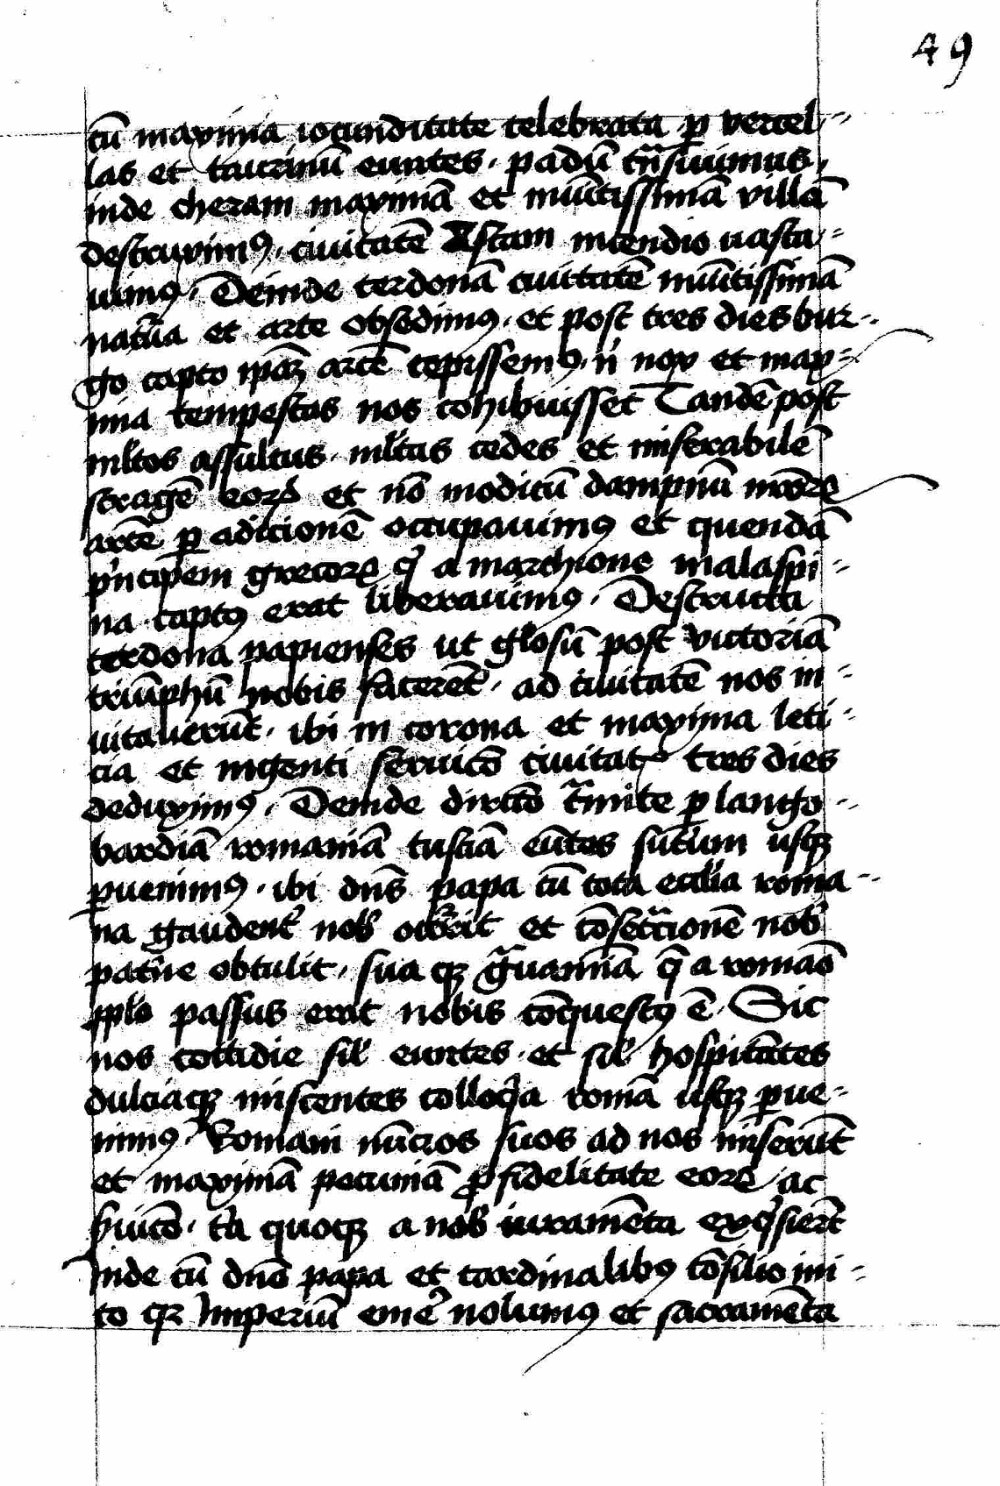 49
cū maxima iocunditate celebrata ꝑ vercel-
las et taurinū euntes. padū trāsiuimus,
inde cheram maximā et munitissimā villā
destruximꝰ. ciuitatē Astam incendio uasta-
uimꝰ. Deinde terdonā ciuitatē munitissimā
natura et arte obsedimꝰ. et post tres dies bur-
go capto ipaꝫ arcē cepissemꝰ. ni nox et max-
ima tempestas nos cohibuisset Tandē post
ml̄tos assultus. ml̄tas cedes et miserabilē
stragē eoꝝ et nō modicū dampnū nr̄oꝝ
arcē ꝑ adicionē occupauimꝰ et quendā
pͥncipem grecoꝝ qͥ a marchione malaspi-
na captꝰ erat liberauimꝰ. Destructa
terdona papienses ut gl̄osū post victoriā
triūphū nobis facerēt. ad ciuitatē nos in-
uitauerūt. ibi in corona et maxima leti-
cia et ingenti seruicō ciuitatꝭ tres dies
deduximꝰ. Deinde directo tͣmite ꝑ lango-
bardiā romaniā tusciā eūtes sutrium usqꝫ
ꝑuenimꝰ. ibi dn̄s papa cū tota eccl̄ia roma-
na gaudent̓ nob̓ occr̄rit et cōsecrͣcionē nob̓
pat̓ne obtulit. sua qꝫ gͣuamīa q̄ a romāo
ppl̓o passus erat nobis cōquestꝰ ē. Sic
nos cottidie sil̓ euntes. et sil̓ hospitātes
dulciaqꝫ miscentes colloqͥa romā usqꝫ ꝑue-
nimꝰ. Romani nūcios suos ad nos miserūt
et maximā pecuniā ꝓ fidelitate eoꝝ ac
s̓uicō. tͥa quoqꝫ a nob̓ iuramēta exqͥsierūt
Inde cū dn̄o papa et cardinalibꝰ cōsilio ini-
to qꝛ Imperiū eme̓ nolumꝰ et sacramēta